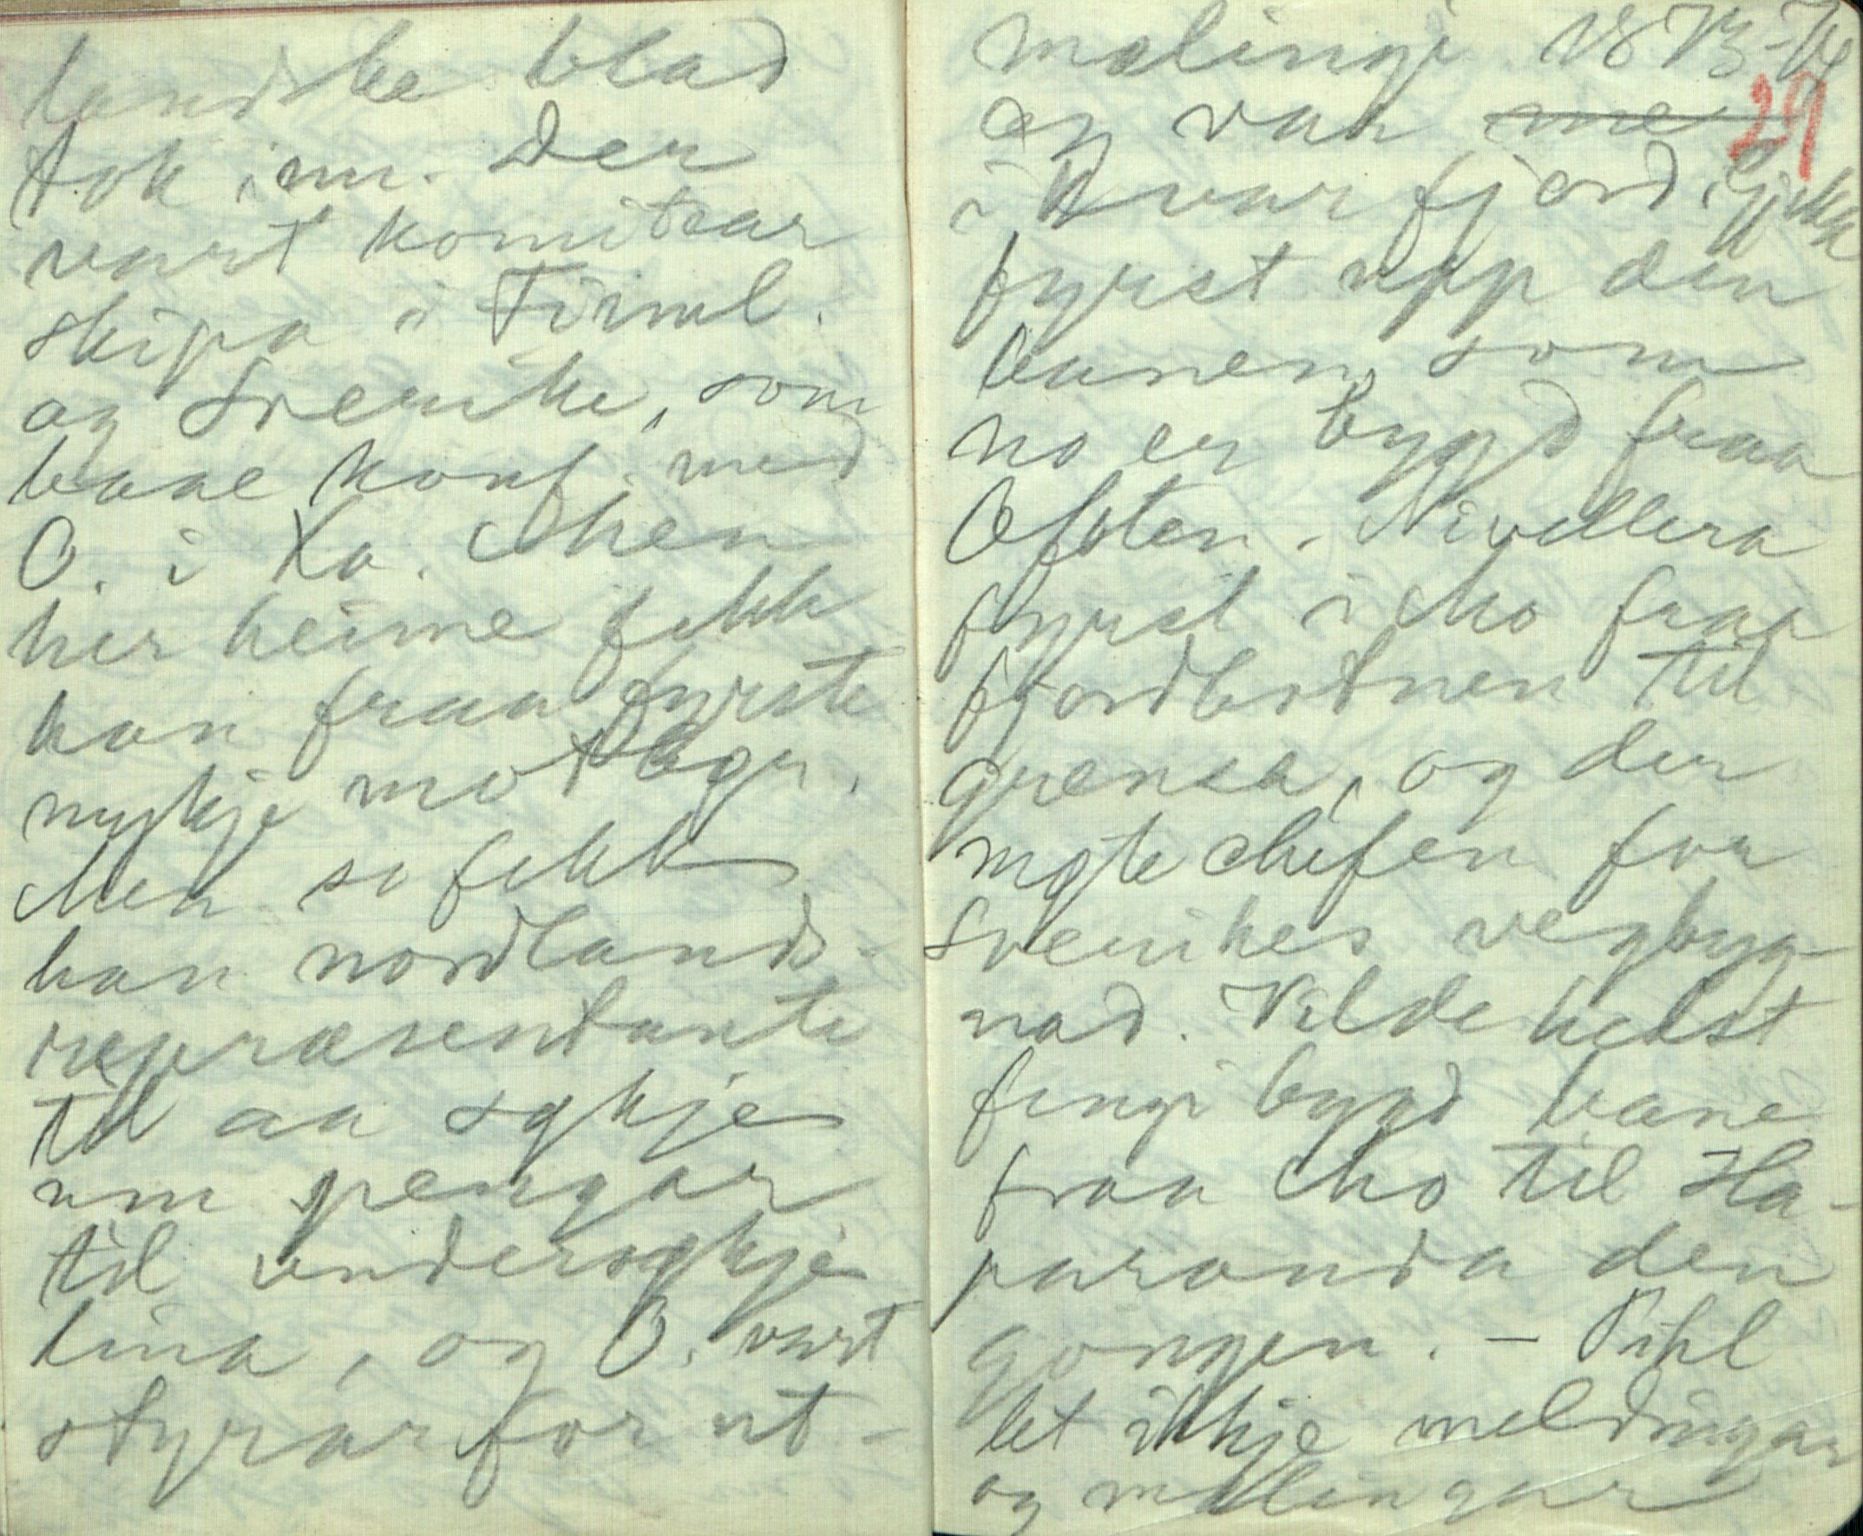 landske blad
tok inn. Der
vart komitear
skipa i Finnl.
og Sverike, som
baae konf. med
O. i Ka. Men
her heime fekk
han fraa fyrste
mykje motbør.
Men so fekk
han nordlands-
repræsentante
til aa søkje
um pengar
til undersøkje
lina, og O. vart
styrar for ut-
malingi 1873-74
29
og var me
i Kvarfjord. Gjekk
fyrst upp den
banen som
no er bygd fraa
Ofoten. Nivellera
fyrst i Mo fraa
fjordbotnen til
grensa, og der
møte chefen for
Sverikes vegbyg-
nad. Vilde helst
fengi bygd bane
fraa Mo til Ha-
paranda den
gongen. - Pihl
let ikkje meldingar
og malingar